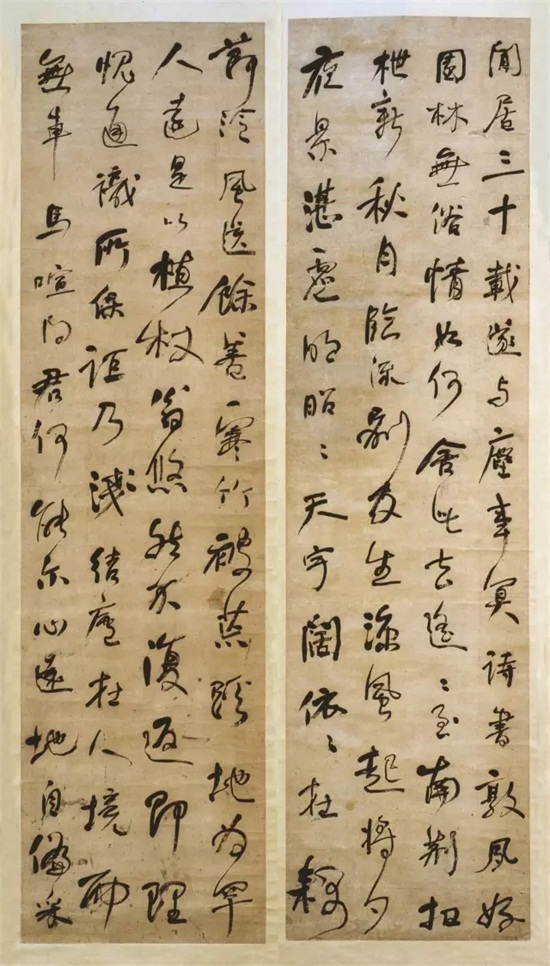 閒居三十載遂与塵事冥詩書敦夙好
園林無俗情如何舍此去遙〻至南荆扣
枻新秋月臨流別友生涼風起將夕
夜景湛虛明昭〻天宇闊依〻在耦
節泠風送餘善寒竹被荒蹊地为罕
人遠是以植杖翁悠然不復返即理
愧通識所保詎乃淺結廬在人境而
無車馬喧问君何能尔心遠地自偏采